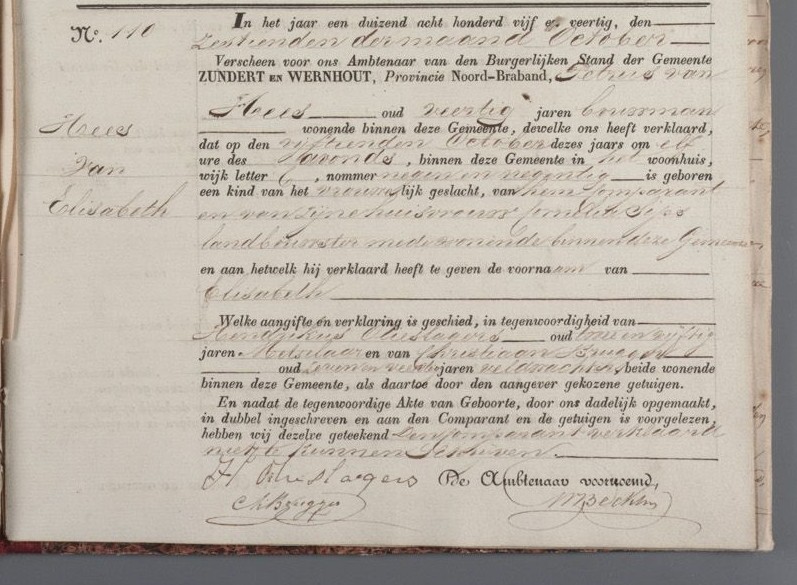 Nº. 110
In het jaar een duizend acht honderd vijf en veertig, den
zestienden der maand October
Verscheen voor ons Ambtenaar van den Burgerlijken Stand der Gemeente
ZUNDERT EN WERNHOUT, Provincie Noord-Braband, Petrus van
Hees oud veertig jaren bouwman
wonende binnen deze Gemeente, dewelke ons heeft verklaard,
dat op den vijftienden October dezes jaars om elf
ure des s'avonds, binnen deze Gemeente in het woonhuis,
wijk letter C, nommer negen en negentig is geboren
een kind van het vrouwelijk geslacht, van hem Comparant
en van zijne huisvrouw Cornelia
landbouwster mede wonende binnen deze Gemeente
en aan hetwelk hij verklaard heeft te geven de voornaam van
Elisabeth
Hees
van
Elisabeth
Welke aangifte en verklaring is geschied, in tegenwoordigheid van
Hendrikus Olieslagers oud twee en vijftig
jaren Metselaar en van Christiaan
oud zeven en veertig jaren veldwachter, beide wonende
binnen deze Gemeente, als daartoe door den aangever gekozene getuigen.
En nadat de tegenwoordige Akte van Geboorte, door ons dadelijk opgemaakt,
in dubbel ingeschreven en aan den Comparant en de getuigen is voorgelezen,
hebben wij dezelve geteekend den Comparant verklaarde
niet te kunnen schrijven.
H Olieslagers De Ambtenaar voornoemd,